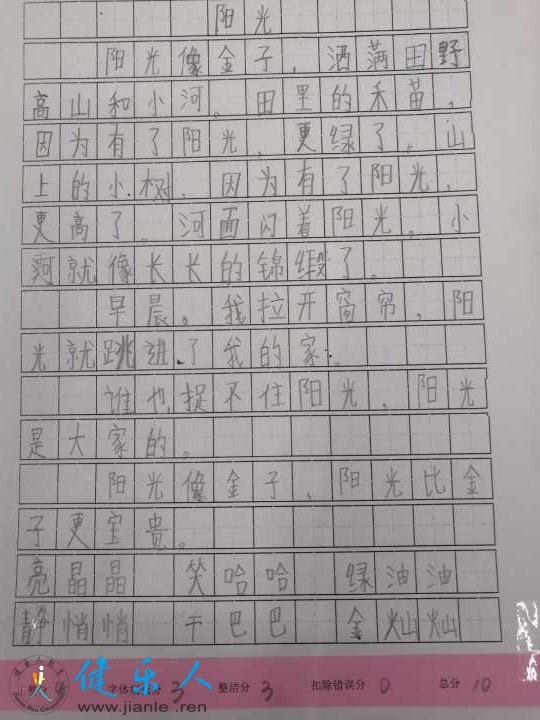 阳光
阳光像金子，洒满田野
高山和小河。田里的禾苗，
因为有了阳光，更绿了。山
上的小树，因为有了阳光，
更高了。河面闪着阳光，小
河就像长长的锦缎了。
早晨，我拉开窗帘，阳
光就跳进了我的家。
谁也捉不住阳光，阳光
是大家的。
阳光像金子，阳光比金
子更宝贵。
亮晶晶 笑哈哈 绿油油
静悄悄 干巴巴 金灿灿
4 字体 分 3 整洁分 3 扣除错误分 0 总分 10
健乐人
www.jianle .ren